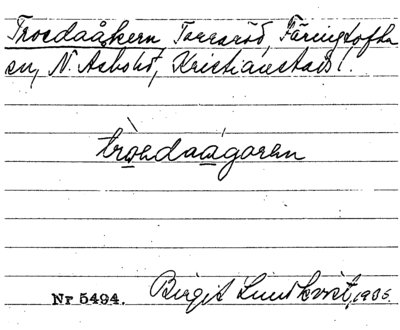 Troedaåkern, Torraröd, Färingtofta
sn, N. Åsbohd, Kristianstads l.
tròedaágorən
Nr 5494. Birgit Lundkvist, 1935.